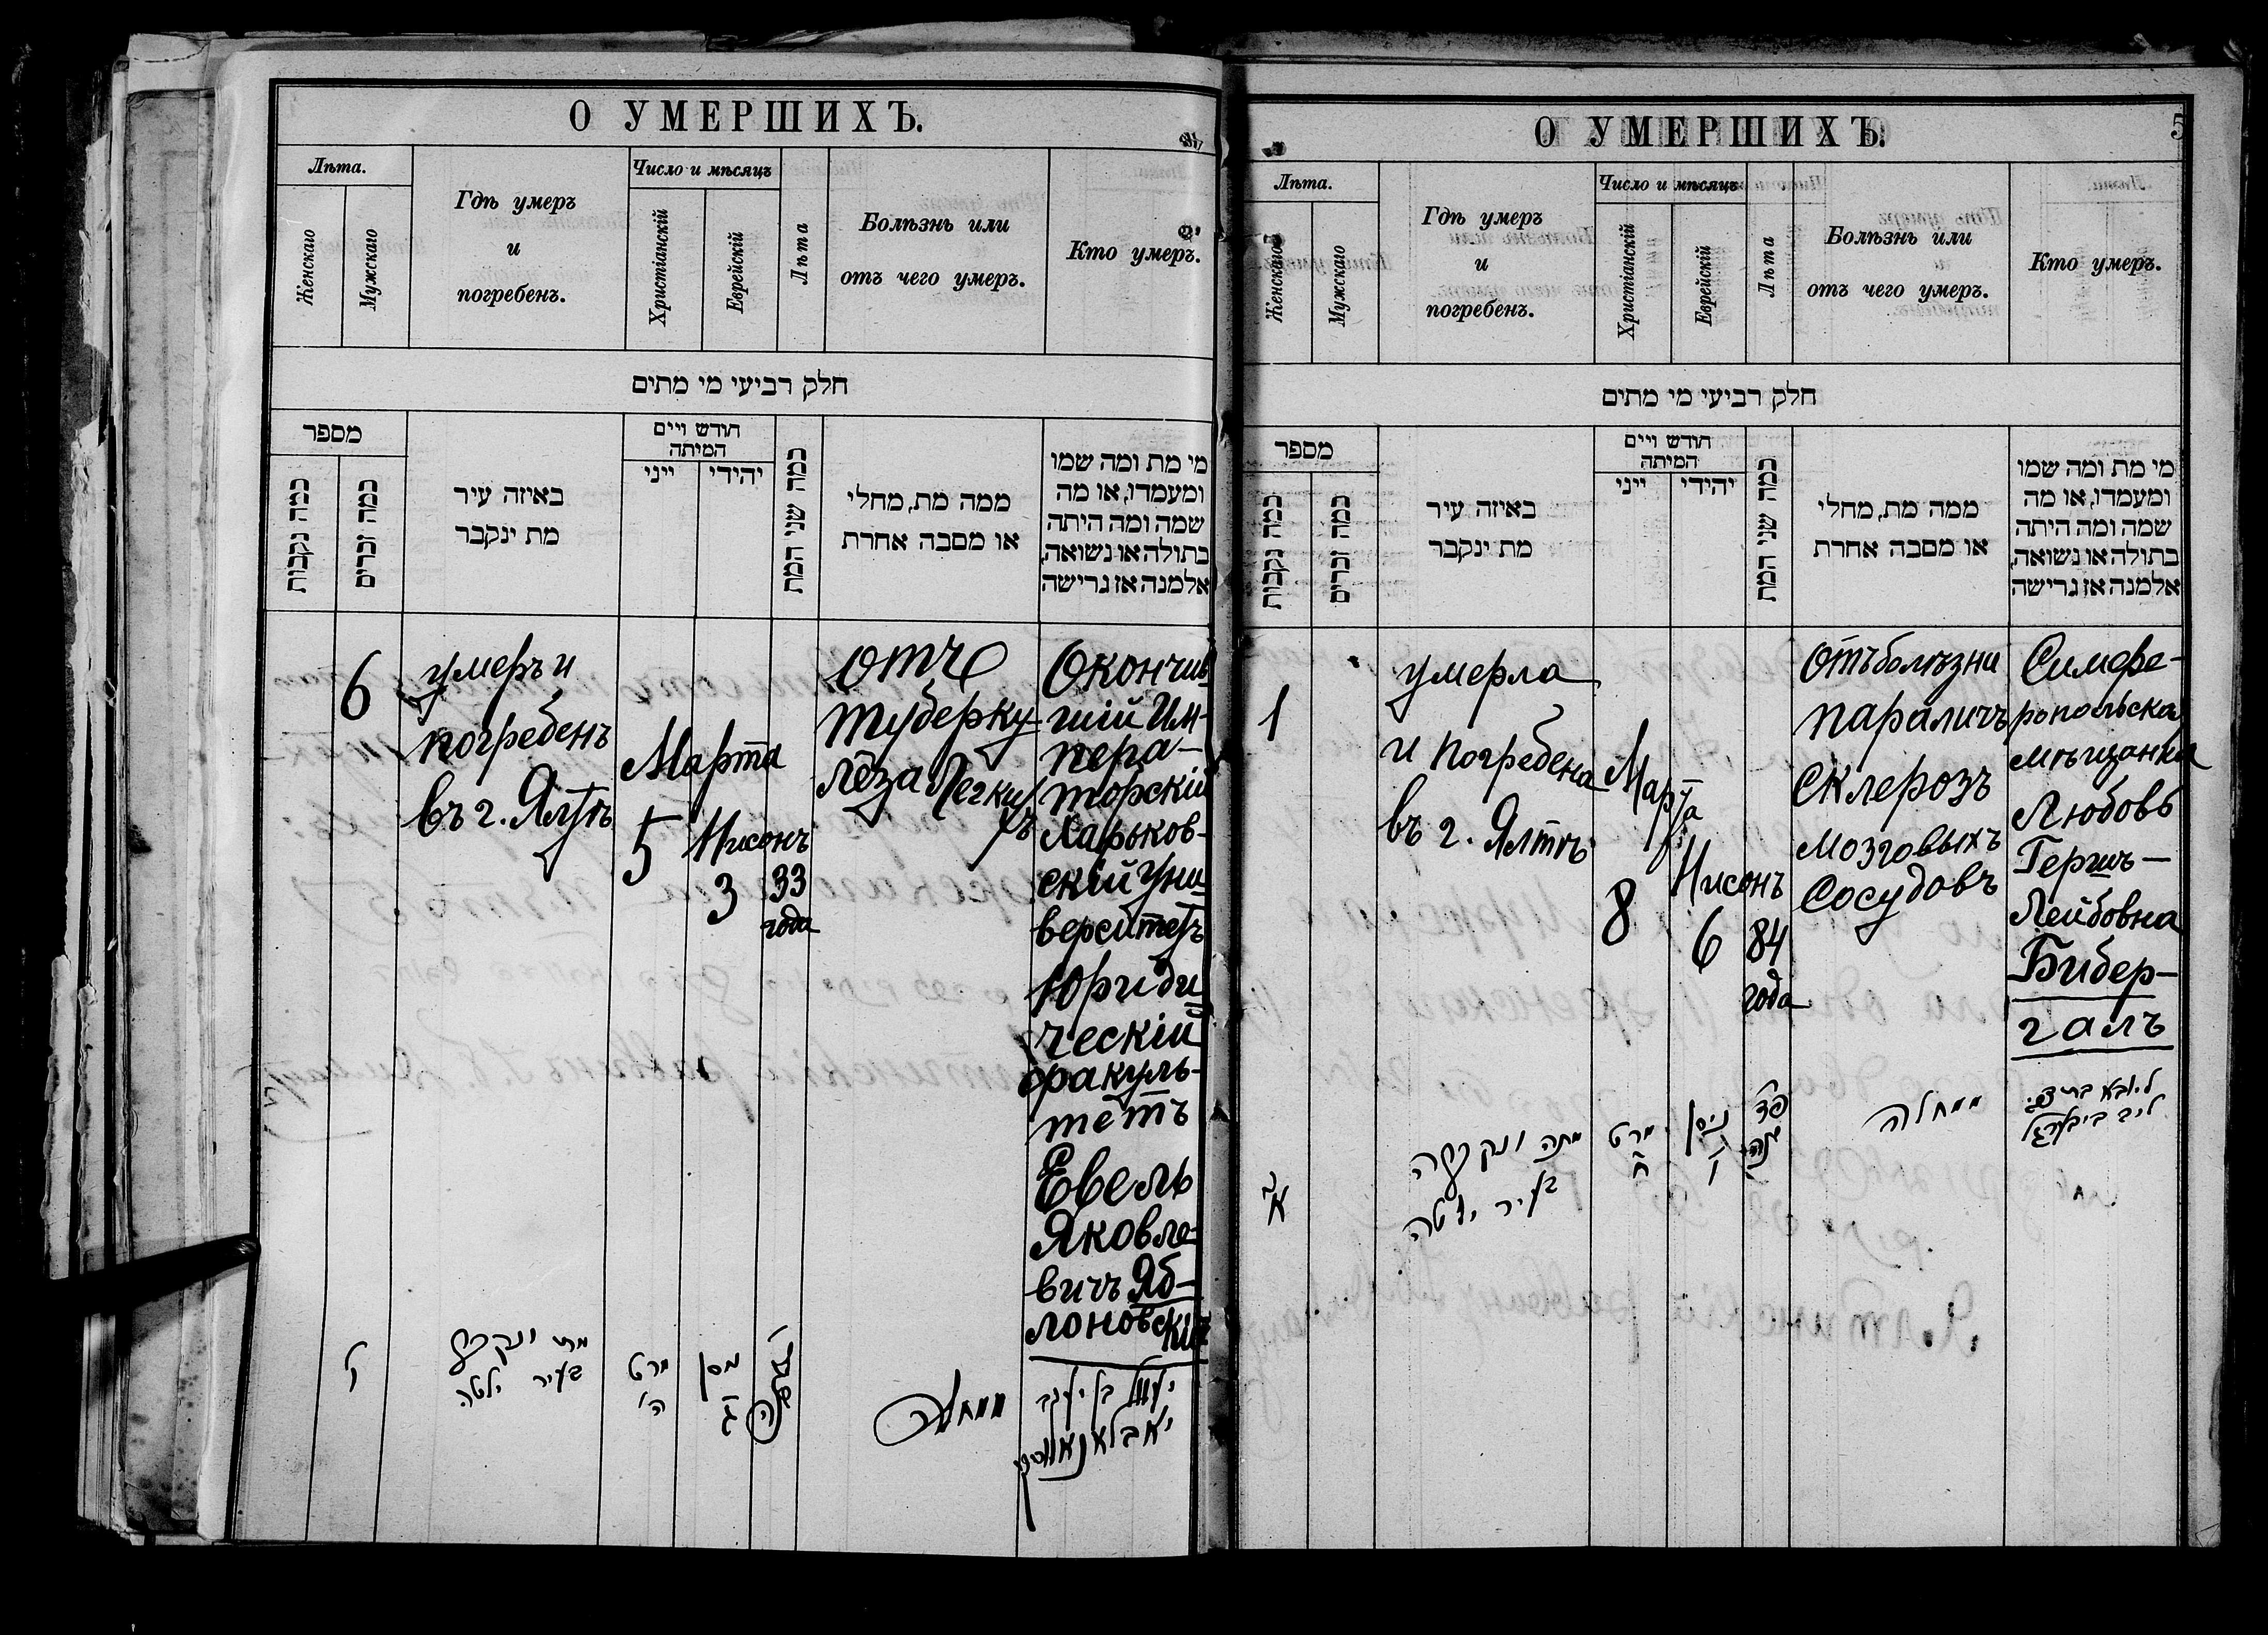 О УМЕРШИХЪ.
Лѣта.
Женскаго
Мужскаго
Гдѣ умеръ
и
погребенъ.
Число и мѣсяцъ
Христіанскій
Еврейскій
Лѣта
Болѣзнь или
отъ чего умеръ.
Кто умеръ.
חלק רביעי מי מתים
מספר
כמה נקבות
כמה זכרים
באיזה עיר
מת ינקבר
חודש ויים
המיתה
ייני
יהידי
כמה שני המת
ממה מת, מחלי
או מסבה אחרת
מי מת ומה שמו
ומעמדו, או מה
שמה ומה היתה
בתולה או נשואה,
אלמנה אז גרישה
6
умеръ и
погребенъ
въ г. Ялтѣ
Марта
5
Нисонъ
3
33
года
отъ
туберку
леза Легки
хъ
Окончив
шій Им-
пера-
торскій
Харьков-
скій Уни
верситетъ
Юриди
ческій
факуль-
тетъ
Евель
Яковле-
вичъ Яб-
лоновскій
ו
מת ונקבר
בעיר ילטה
מרט
ה'
ניסן
ג
ממחלה
בן יעקב
О УМЕРШИХЪ.
5
Лѣта.
Женскаго
Мужскаго
Гдѣ умеръ
и
погребенъ.
Число и мѣсяцъ
Христіанскій
Еврейскій
Лѣта
Болѣзнь или
отъ чего умеръ.
Кто умеръ.
חלק רביעי מי מתים
מספר
כמה נקבות
כמה זכרים
באיזה עיר
מת ינקבר
חודש ויים
המיתה
ייני
יהידי
כמה שני המת
ממה מת, מחלי
או מסבה אחרת
מי מת ומה שמו
ומעמדו, או מה
שמה ומה היתה
בתולה או נשואה,
אלמנה אז גרישה
1
умерла
и погребена
въ г. Ялтѣ
Марта
8
Нисонъ
6
84
года
отъ болѣзни
параличъ
склерозъ
мозговыхъ
сосудовъ
Симфе-
ропольская
мѣщанка
Любовь
Гершъ-
Лейбовна
Бибер-
галъ
א
מתה ונקברה
בעיר ילטה
מרט
ח
ניסן
ו
פד
שנה
ממחלה
ליובא בת
ליב ביבערגל